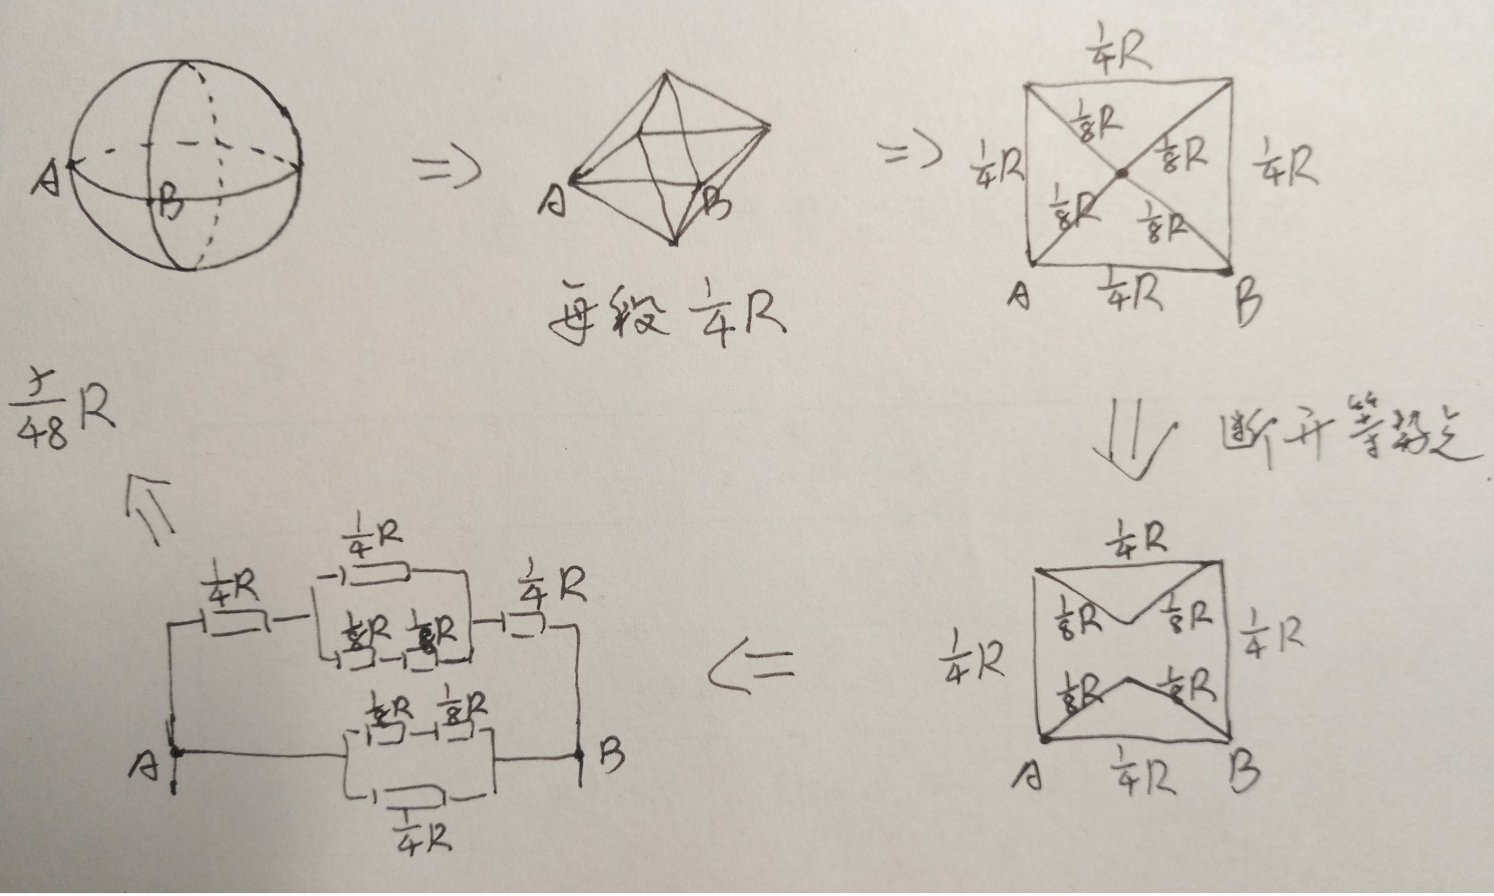 A
B
A
B
每段 1/4R
1/4R
1/8R
1/8R
1/4R
1/4R
1/8R
1/8R
A
1/4R
B
断开等势点
1/4R
1/8R
1/8R
1/4R
1/4R
1/8R
1/8R
A
1/4R
B
1/4R
1/4R
1/4R
1/8R
1/8R
1/8R
1/8R
A
B
1/4R
5/48R